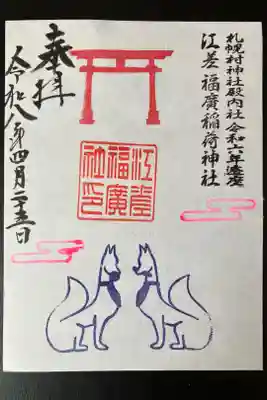 札幌村神社殿内社 令和六年遷座
江差福廣稲荷神社
奉拝
令和八年四月二十五日
江差
福廣
社印